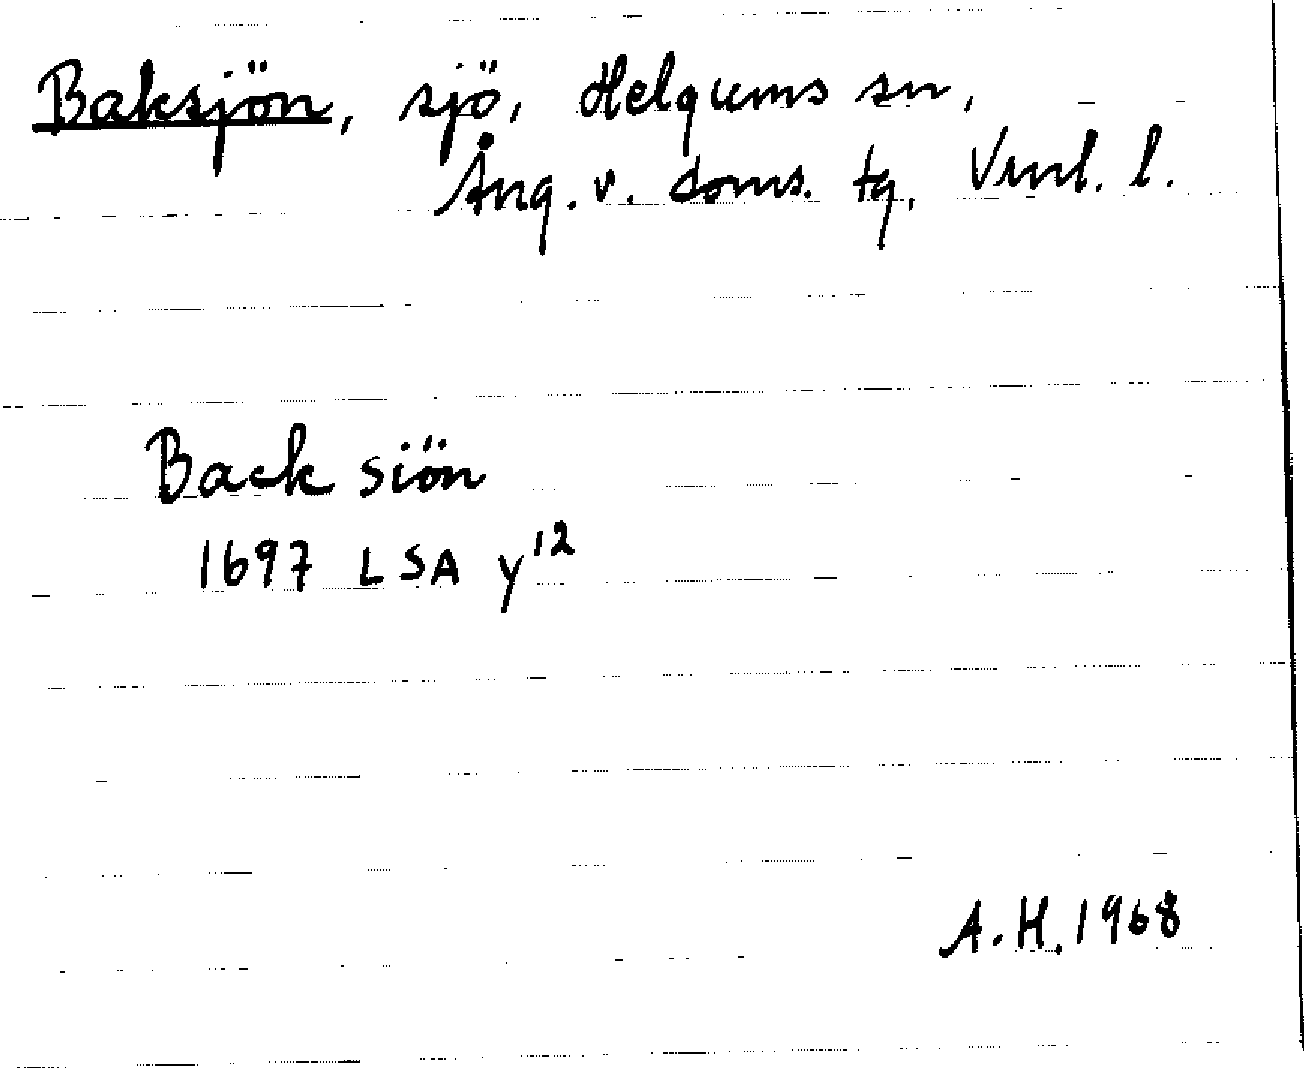 Baksjön, sjö, Helgums sn,
Ång. v. doms. tg, Vnl. l.
Back siön
1697 LSA Y12
A.H. 1968